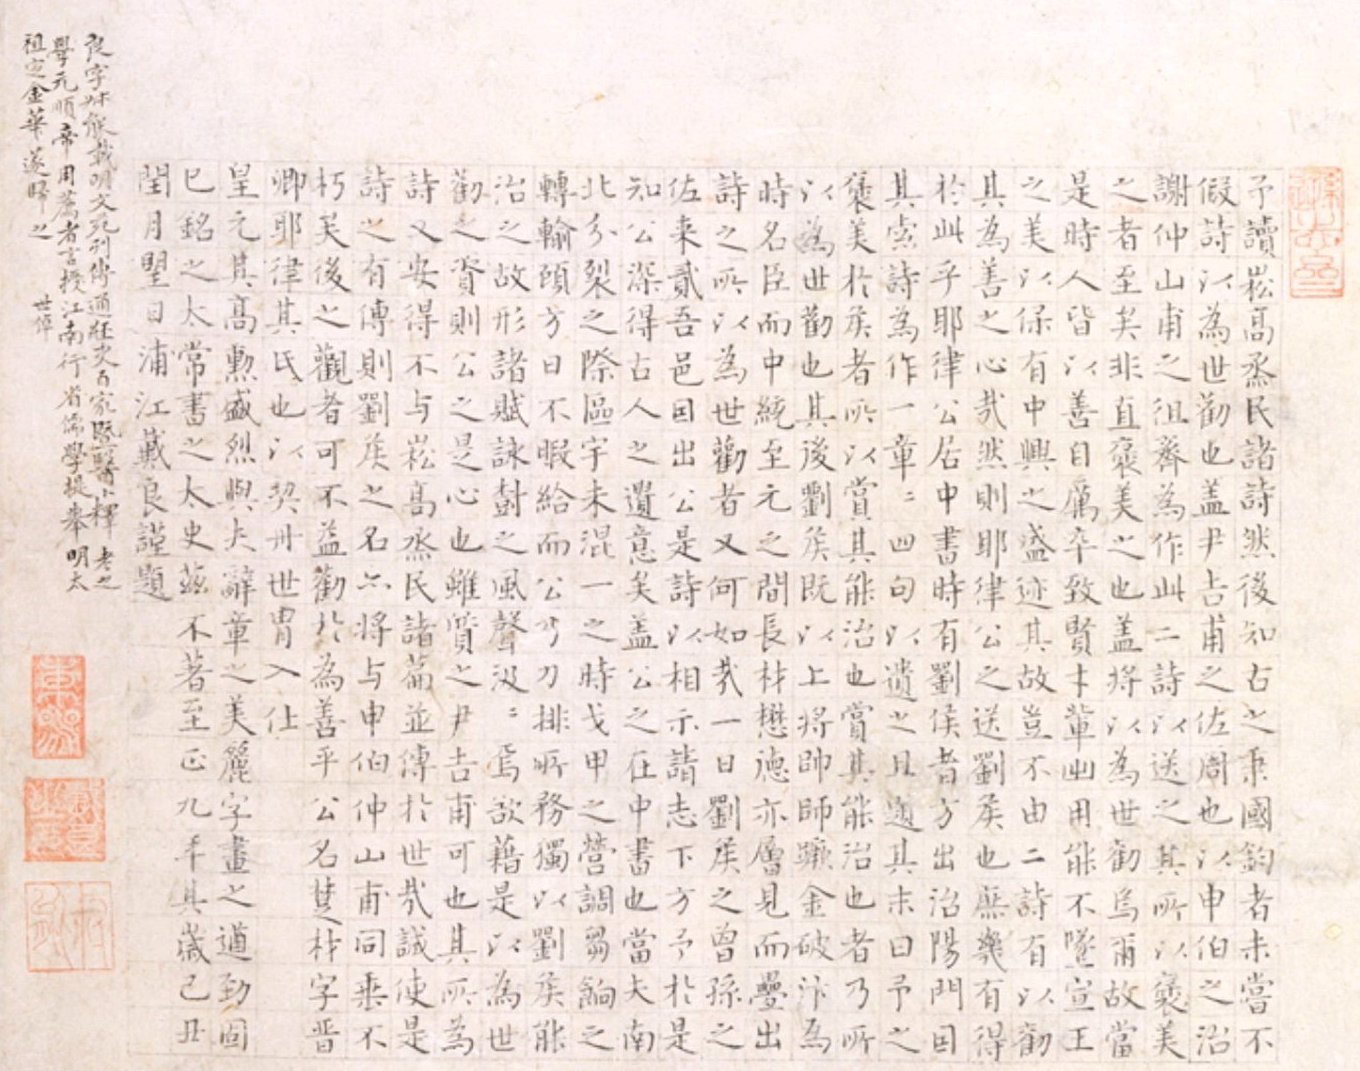 予讀崧高烝民諸詩然後知古之秉國鈞者未嘗不
假詩以為世勸也盖尹吉甫之佐周也以申伯之治
謝仲山甫之徂齊為作此二詩以送之其所以褒美
之者至矣非直褒美之也盖將以為世勸焉爾故當
是時人皆以善自厲卒致賢才軰出用能不墜宣王
之美以保有中興之盛迹其故豈不由二詩有以勸
其為善之心㢤然則耶律公之送劉矦也庶幾有得
於此乎耶律公居中書時有劉侯者方出治陽門因
其索詩為作一章〻四句以遺之且題其末曰予之
褒美於矦者所以賞其能治也賞其能治也者乃所
以為世勸也其後劉矦既以上將帥師蹶金破汴為
時名臣而中統至元之間長材懋德亦層見而疊出
詩之所以為世勸者又何如㢤一日劉矦之曾孫之
佐来貳吾邑因出公是詩以相示請志下方予於是
知公深得古人之遺意矣盖公之在中書也當夫南
北分裂之際區宇未混一之時戈甲之營調芻餉之
轉輸頋方日不暇給而公乃力排所務獨以劉矦能
治之故形諸賦詠𡬶之風聲汲〻焉欲藉是以為世
勸之資則公之是心也雖質之尹吉甫可也其所為
詩又安得不与崧高烝民諸萹並傳於世㢤誠使是
詩之有傳則劉矦之名亦將与申伯仲山甫同垂不
朽矣後之觀者可不益勸於為善乎公名楚材字晋
卿耶律其氏也以契丹世胄入仕
皇元其高勲盛烈與夫辭章之美麗字畫之遒勁固
已銘之太常書之太史茲不著至正九年其嵗己丑
閏月朢日浦江戴良謹題
良字叔能載明文苑列傳通經史百家暨醫卜釋老之
學元順帝用薦者言授江南行省儒學提舉明太
祖定金華遂歸之
世倬